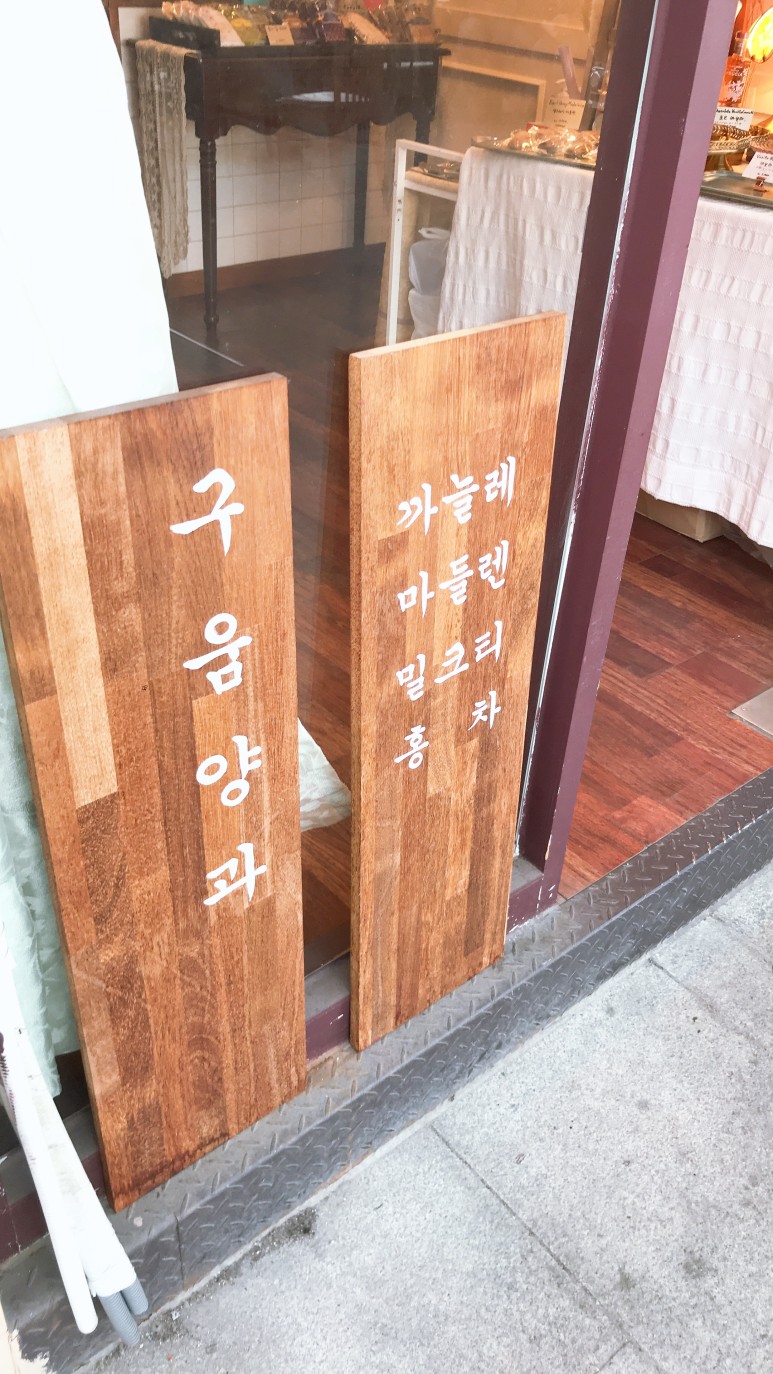 구움양과
까눌레
마들렌
밀크티
홍 차